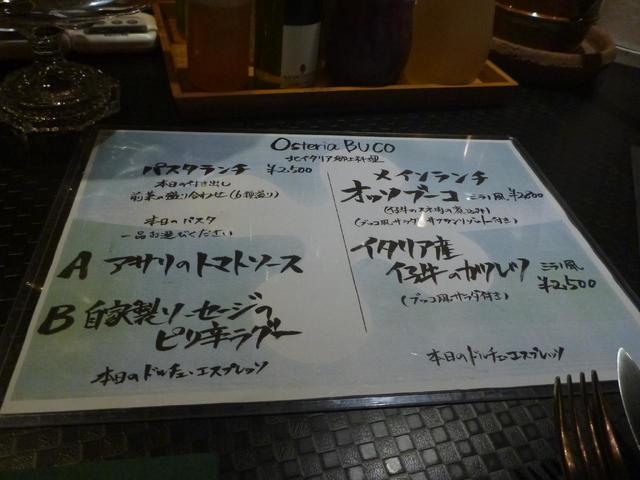 Osteria BUCO
北イタリア郷土料理
パスタランチ ¥2,500
本日の付き出し
前菜の盛り合わせ(6種盛り)
本日のパスタ
一品お選びください
A アサリのトマトソース
B 自家製ソーセージの
ピリ辛ラグー
本日のドルチェ・エスプレッソ
メインランチ
オッソブーコ ミラノ風 ¥2,800
(仔牛のスネ肉の煮込み)
(ブッコ風サラダ サフランリゾット付き)
イタリア産
仔牛のカツレツ ミラノ風
¥2,500
(ブッコ風サラダ付き)
本日のドルチェ・エスプレッソ